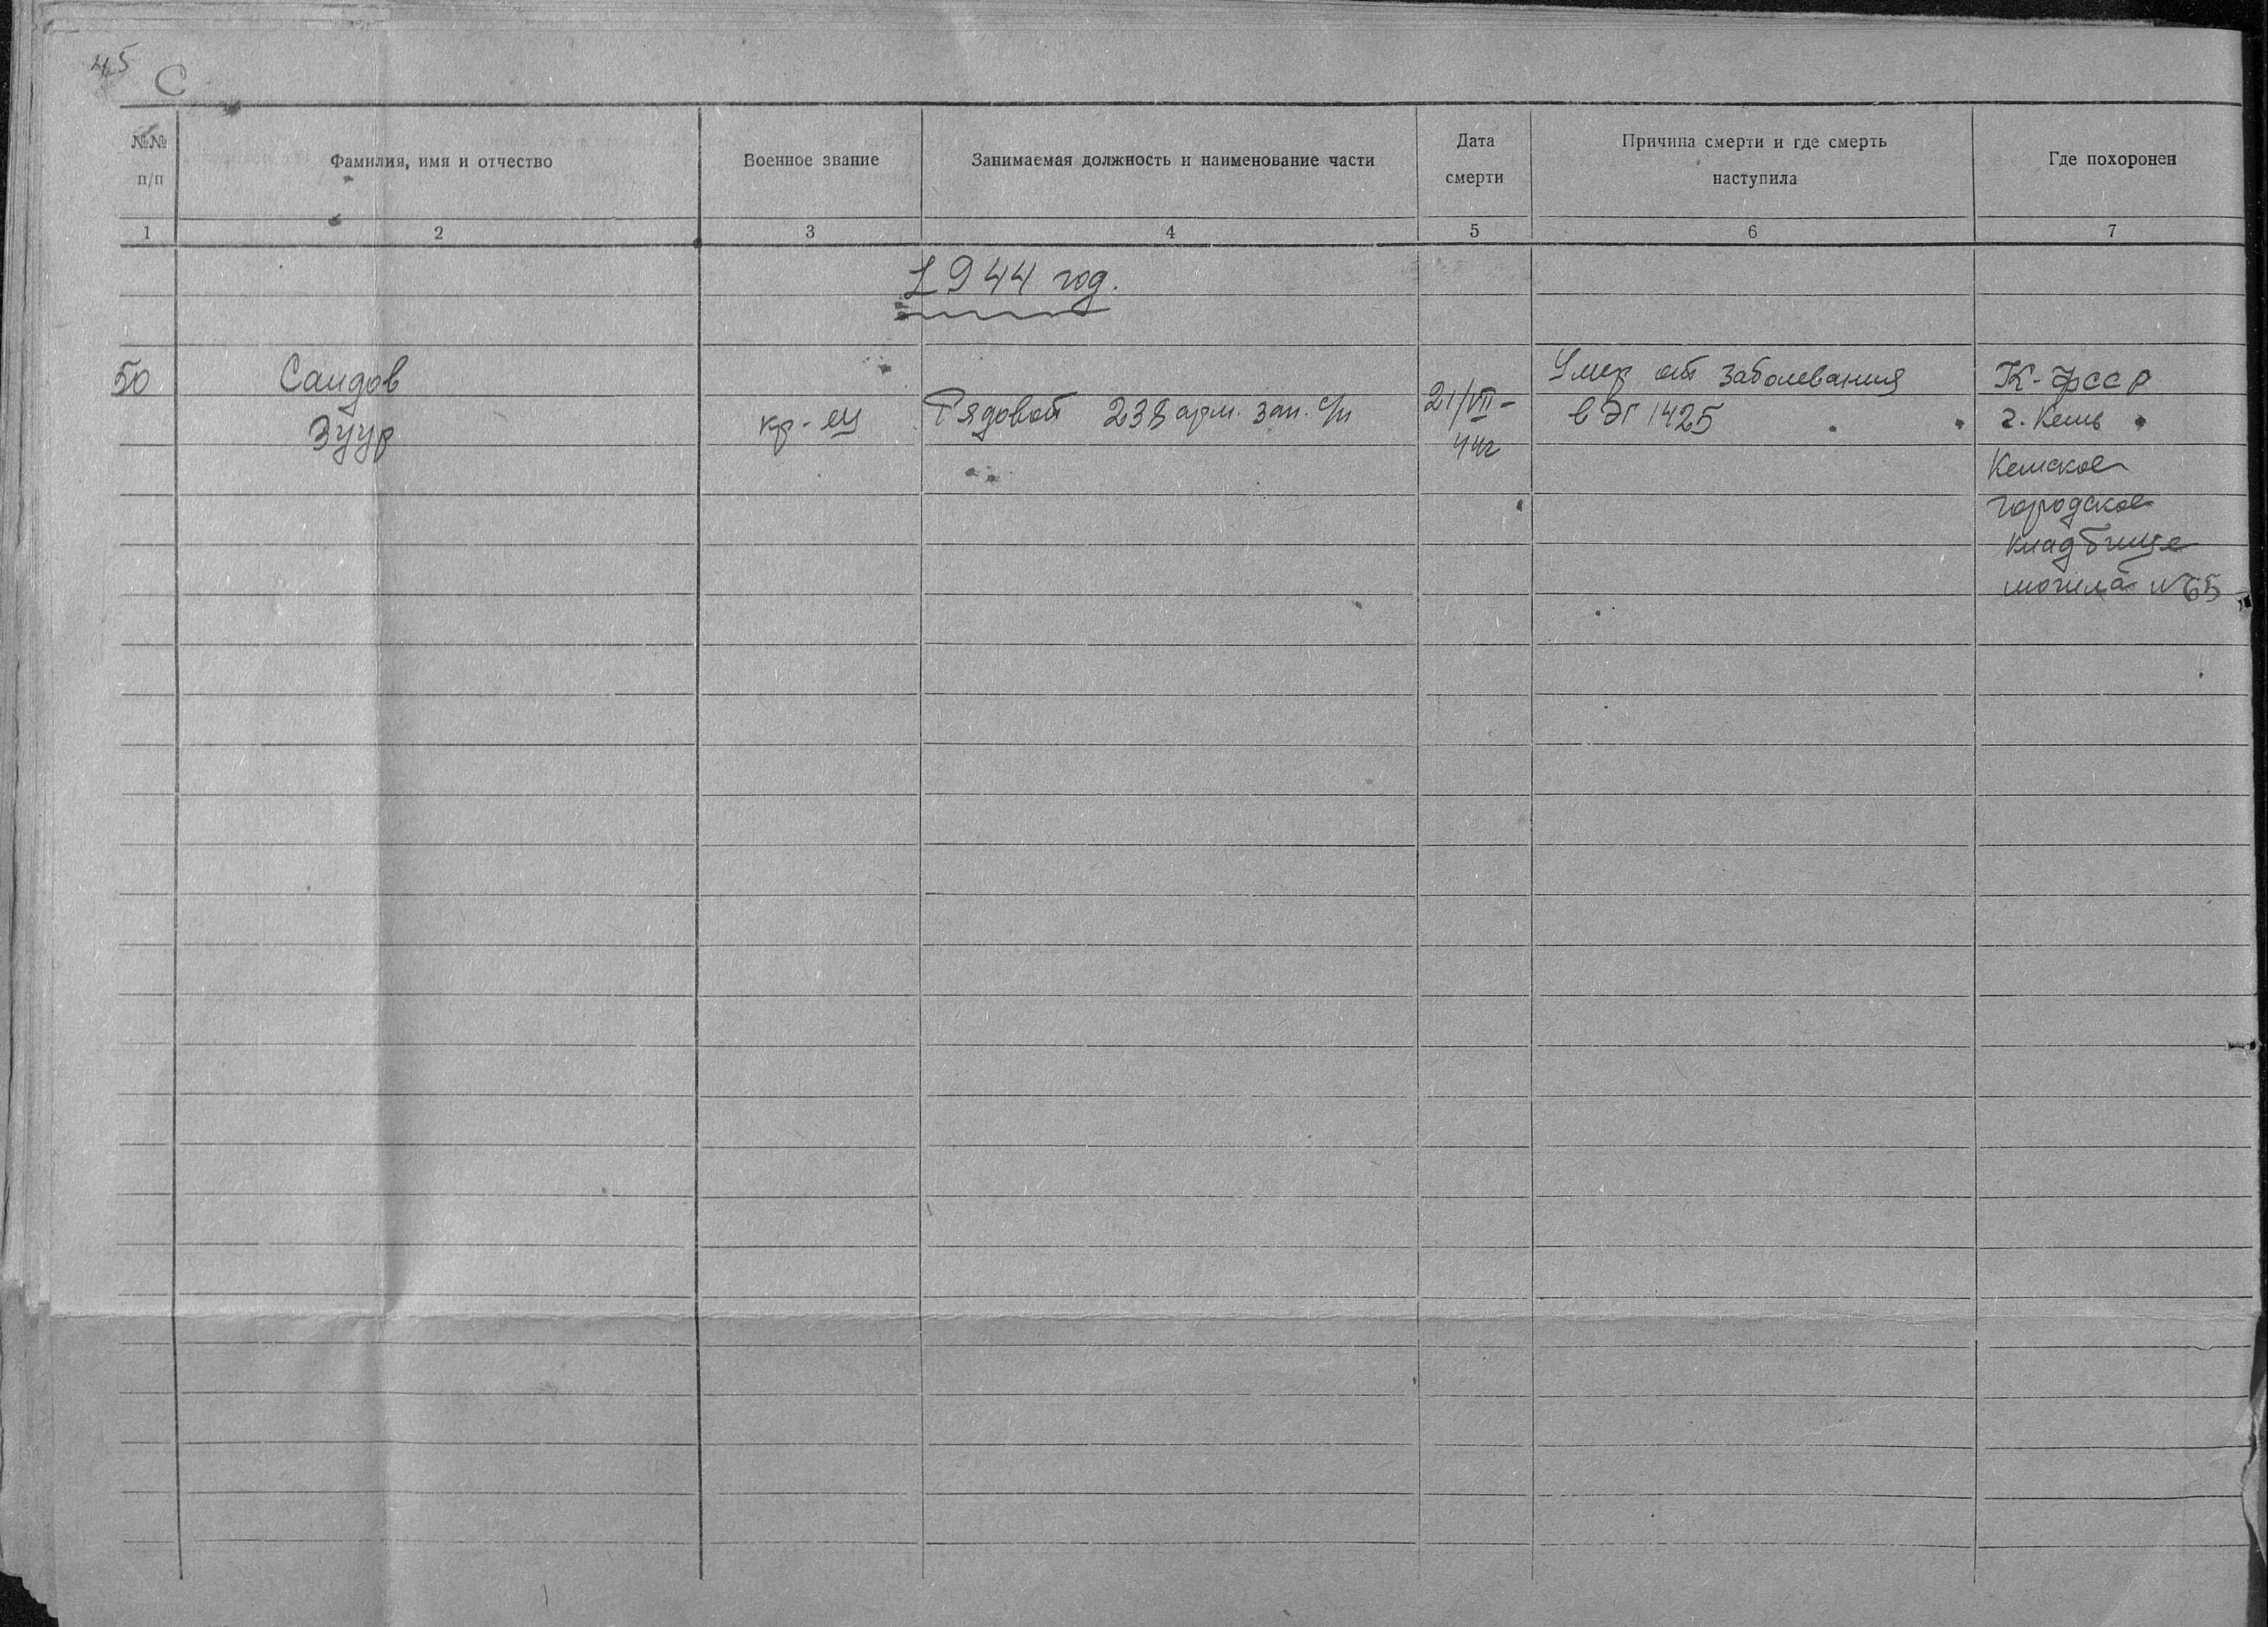 45
С
№№ п/п
Фамилия, имя и отчество
Военное звание
Занимаемая должность и наименование части
Дата смерти
Причина смерти и где смерть наступила
Где похоронен
1 2 3 4 5 6 7
1944 год.
50
Саидов
Зуур
кр-ец
Рядовой 238 арм. зап. с/п
21/VII-
44г
Умер от заболевания
в ЭГ 1425
К-ФССР
г. Кемь
Кемское
городское
кладбище
могила №65